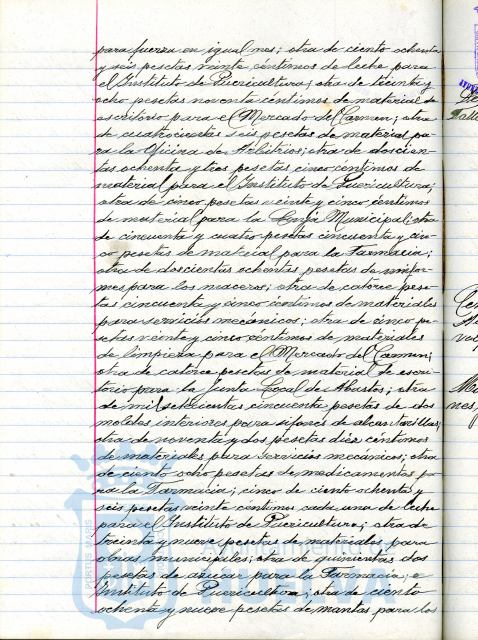 para fuerza en igual mes; otra de ciento ochenta
y seis pesetas veinte céntimos de leche para
el Instituto de Puericultura; otra de treinta y
ocho pesetas noventa céntimos de material de
escritorio para el Mercado del Carmen; otra
de cuatrocientas seis pesetas de material pa-
ra la Oficina de Arbitrios; otra de doscien-
tas ochenta y tres pesetas cinco céntimos de
material para el Instituto de Puericultura;
otra de cinco pesetas veinte y cinco céntimos
de material para la Granja Municipal; otra
de cincuenta y cuatro pesetas cincuenta y cin-
co pesetas de material para la Farmacia;
otra de doscientas ochenta pesetas de unifor-
mes para los maceros; otra de catorce pese-
tas cincuenta y cinco céntimos de materiales
para servicios mecánicos; otra de cinco pe-
setas veinte y cinco céntimos de materiales
de limpieza para el Mercado del Carmen;
otra de catorce pesetas de material de escri-
torio para la Junta Local de Abastos; otra
de mil setecientas cincuenta pesetas de dos
moldes interiores para sifones de alcantarillas;
otra de noventa y dos pesetas diez céntimos
de materiales para Servicios mecánicos; otra
de ciento ocho pesetas de medicamentos pa-
ra la Farmacia; cinco de ciento ochenta y
seis pesetas veinte céntimos cada una de leche
para el Instituto de Puericultura; otra de
treinta y nueve pesetas de materiales para
obras municipales; otra de quinientas dos
pesetas de azúcar para la Farmacia e
Instituto de Puericultura; otra de ciento
ochenta y nueve pesetas de mantas para los